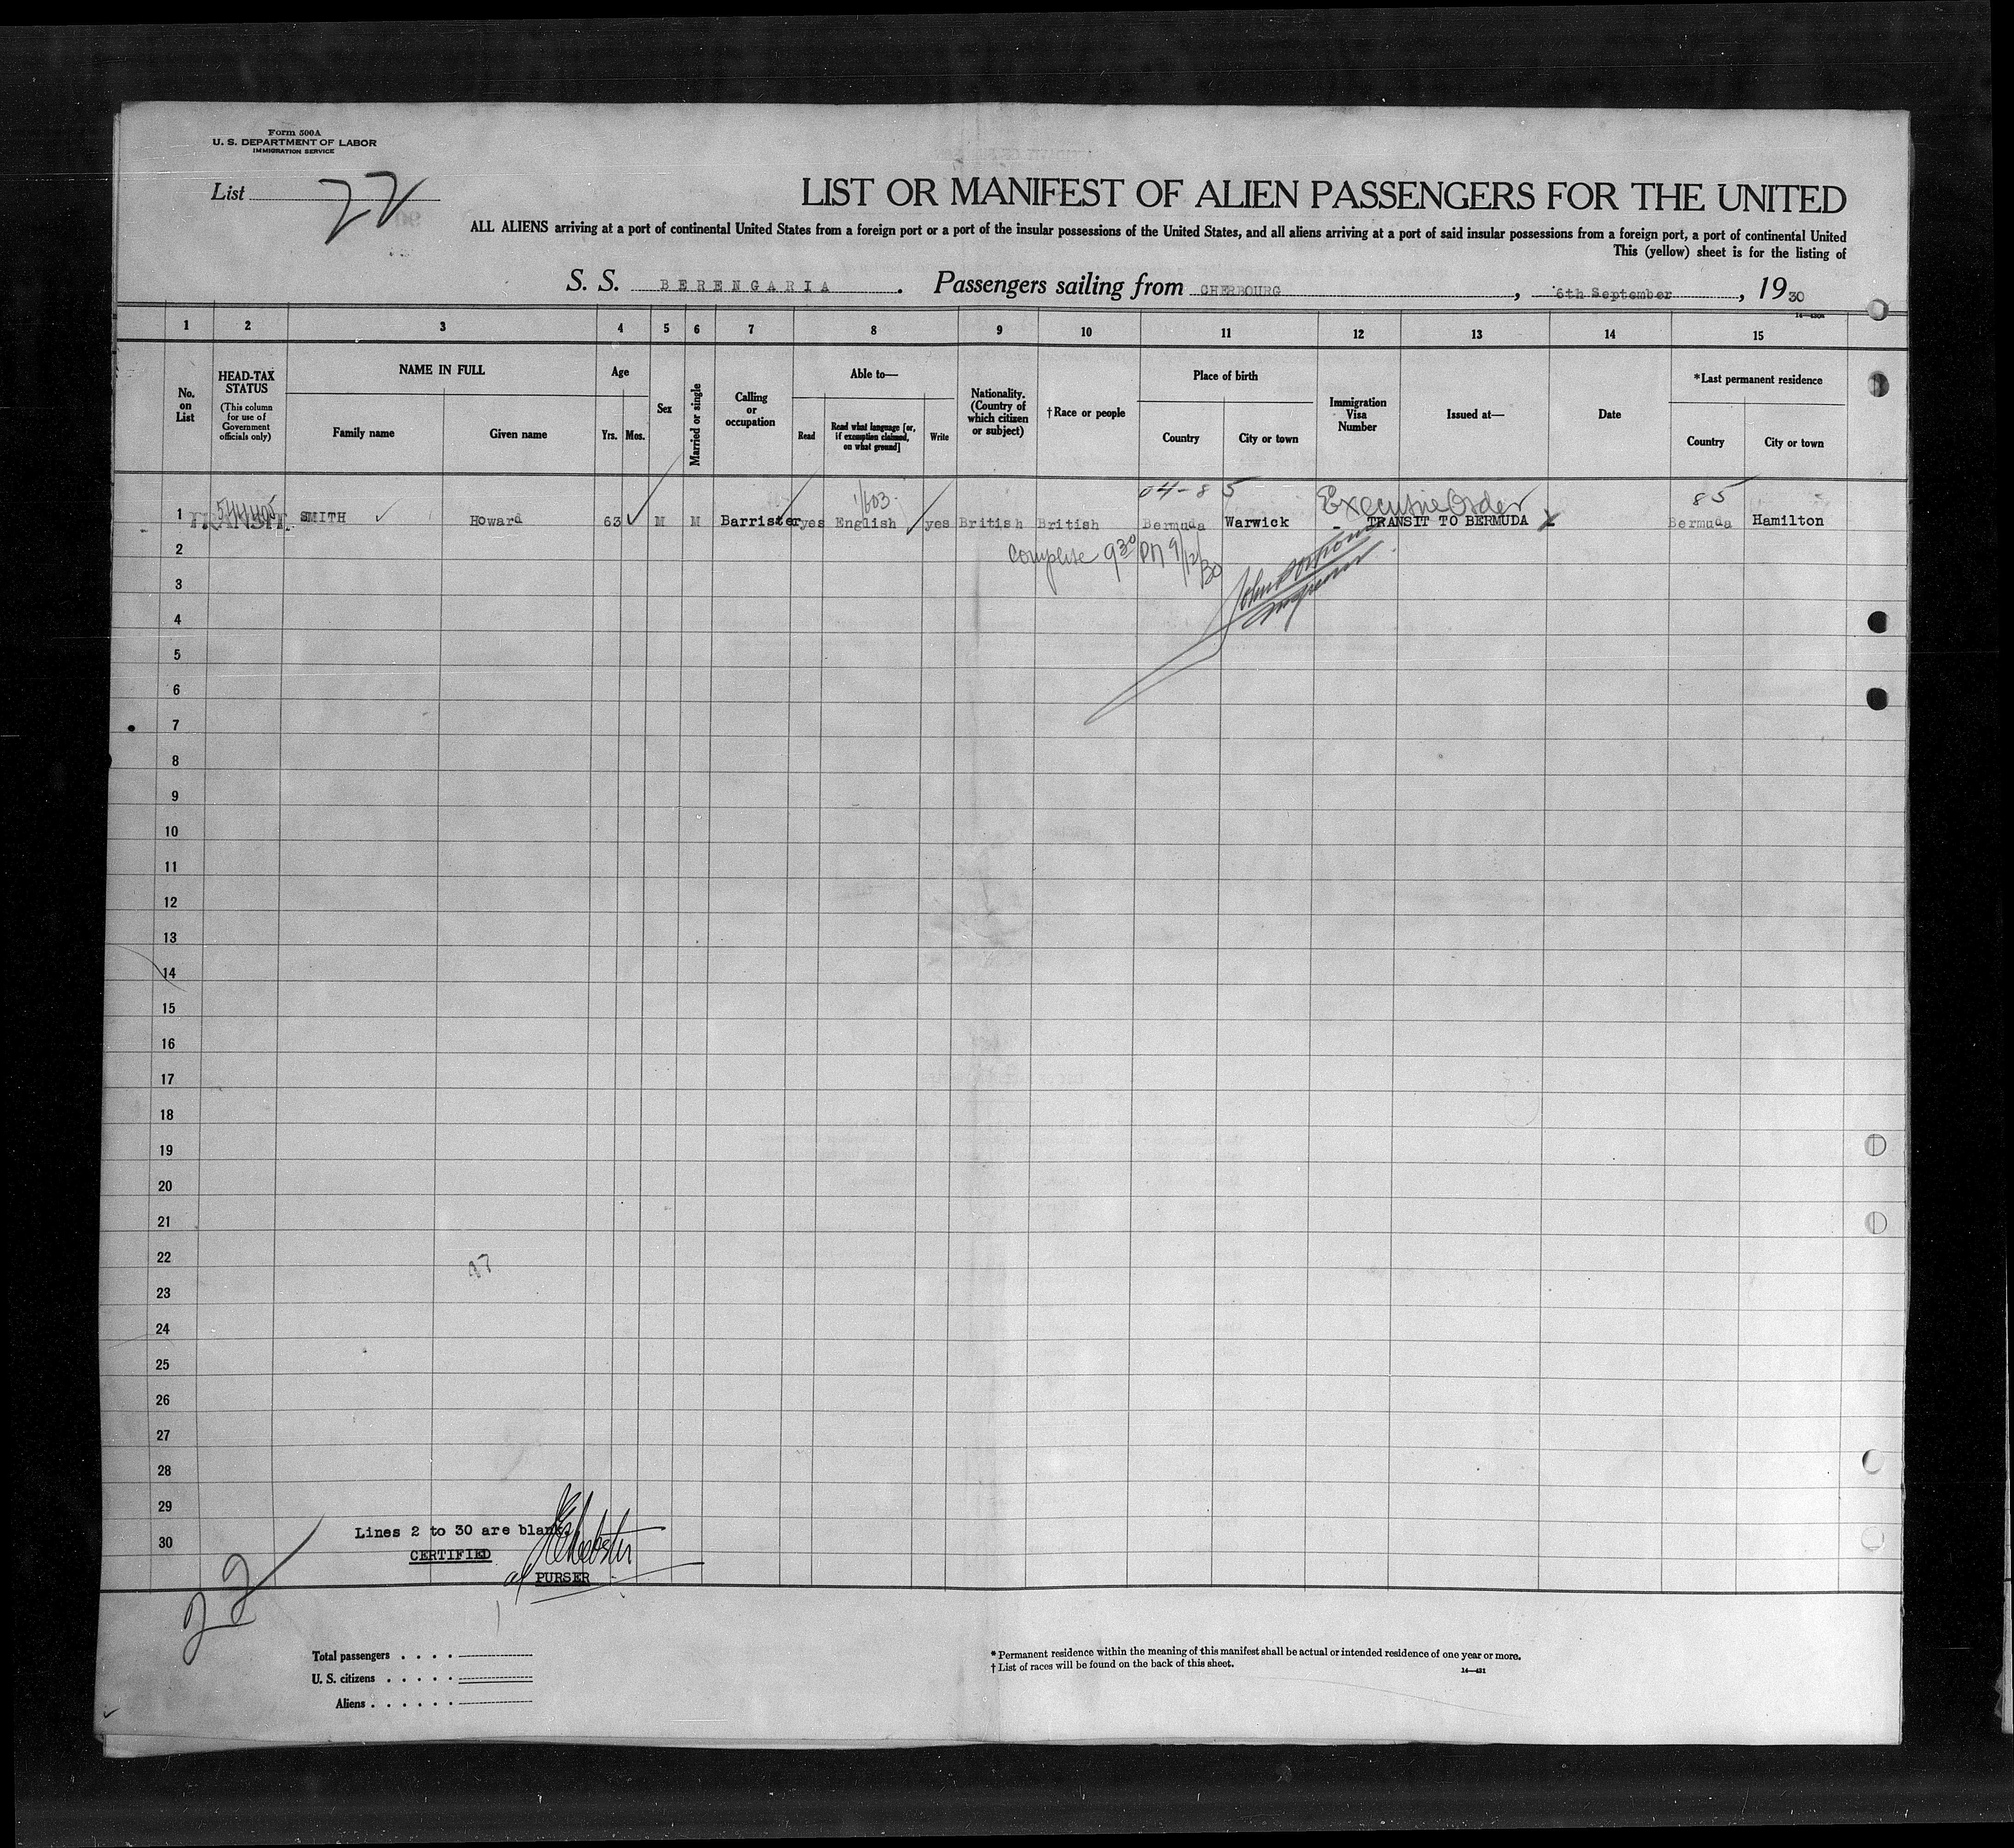 Form 500A
U. S. DEPARTMENT OF LABOR
IMMIGRATION SERVICE
List 22
LIST OR MANIFEST OF ALIEN PASSENGERS FOR THE UNITED
ALL ALIENS arriving at a port of continental United States from a foreign port or a port of the insular possessions of the United States, and all aliens arriving at a port of said insular possessions from a foreign port, a port of continental United
This (yellow) sheet is for the listing of
S. S. BERENGARIA. Passengers sailing from CHERBOURG, 6th September, 1930
1 2 3 4 5 6 7 8 9 10 11 12 13 14 15
No. on List
HEAD-TAX STATUS (This column for use of Government officials only)
NAME IN FULL
Family name Given name
Age
Yrs. Mos.
Sex
Married or single
Calling or occupation
Able to—
Read
Read what language [or, if exemption claimed, on what ground]
Write
Nationality. (Country of which citizen or subject)
†Race or people
Place of birth
Country City or town
Immigration Visa Number
Issued at—
Date
*Last permanent residence
Country City or town
1/603 04-85 Executive Order 85
1 TRANSIT. SMITH Howard 63 M M Barrister yes English yes British British Bermuda Warwick - TRANSIT TO BERMUDA Bermuda Hamilton
2 Complete 9 30 PM 9/12/30
3
4
5
6
7
8
9
10
11
12
13
14
15
16
17
18
19
20
21
22
23
24
25
26
27
28
29
30
Lines 2 to 30 are blank.
CERTIFIED
Webster
PURSER
22
Total passengers
U. S. citizens
Aliens
* Permanent residence within the meaning of this manifest shall be actual or intended residence of one year or more.
† List of races will be found on the back of this sheet.
14—431